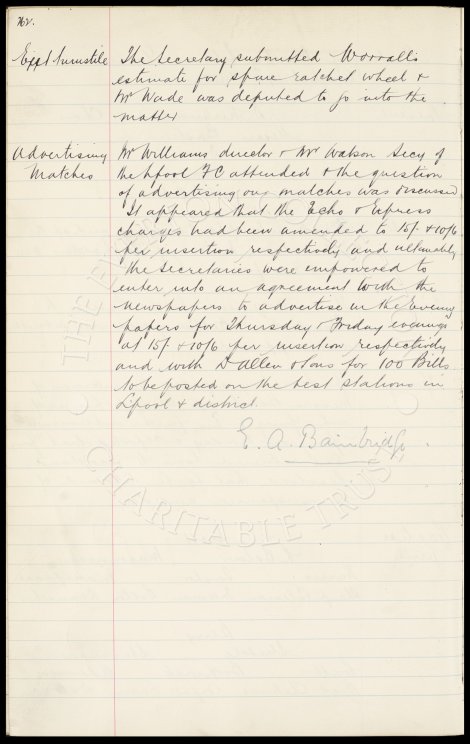 The Secretary submitted Worralls
estimate for spare ratchet wheel &
Mr Wade was deputed to go into the
matter
Advertising
Matches
Mr Williams director & Mr Watson Secy of
the Lpool FC attended & the question
of advertising our matches was discussed
It appeared that the Echo & Express
charges had been amended to 15/- & 10/6
per insertion respectively and ultimately
the Secretaries were empowered to
enter into an agreement with the
newspapers to advertise in the Evening
papers for Thursday & Friday evenings
at 15/- & 10/6 per insertion respectively
and with D Allen & Sons for 100 Bills
to be posted on the best stations in
Lpool & district.
E. A. Bainbridge
THE EVERTON
CHARITABLE TRUST